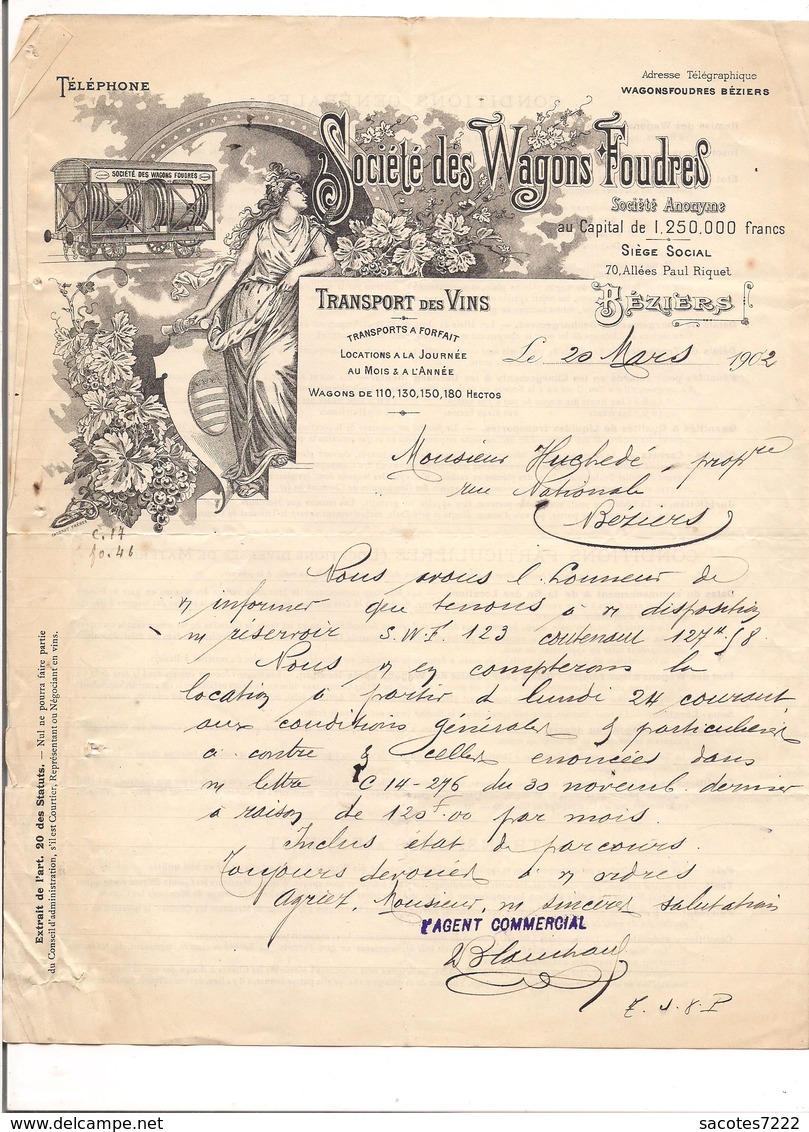 TÉLÉPHONE
Adresse Télégraphique
WAGONSFOUDRES BÉZIERS
SOCIÉTÉ DES WAGONS FOUDRES
Société des Wagons Foudres
Société Anonyme
au Capital de 1.250.000 francs
SIÈGE SOCIAL
70, Allées Paul Riquet
BÉZIERS
TRANSPORT DES VINS
TRANSPORTS A FORFAIT
LOCATIONS A LA JOURNÉE
AU MOIS & A L'ANNÉE
WAGONS DE 110, 130, 150, 180 HECTOS
Le 20 Mars 1902
Monsieur Huchedé, propre
rue Nationale
Béziers
C. 17
fo. 46
Nous avons l. honneur de
v informer que tenons à v disposition
n réservoir S.W.F. 123 contenant 127H 58.
Nous v en compterons la
location à partir d lundi 24 courant
aux conditions générales & particulières
ci contre & celles enoncées dans
n lettre C 14-276 du 30 novemb. dernier
à raison de 120F.00 par mois.
Inclus état de parcours.
Toujours dévoués à v ordres
Agréez, Monsieur, n sincères salutations
L'AGENT COMMERCIAL
Blanchard
Extrait de l'art. 20 des Statuts. — Nul ne pourra faire partie
du Conseil d'administration, s'il est Courtier, Représentant ou Négociant en vins.
sacotes7222